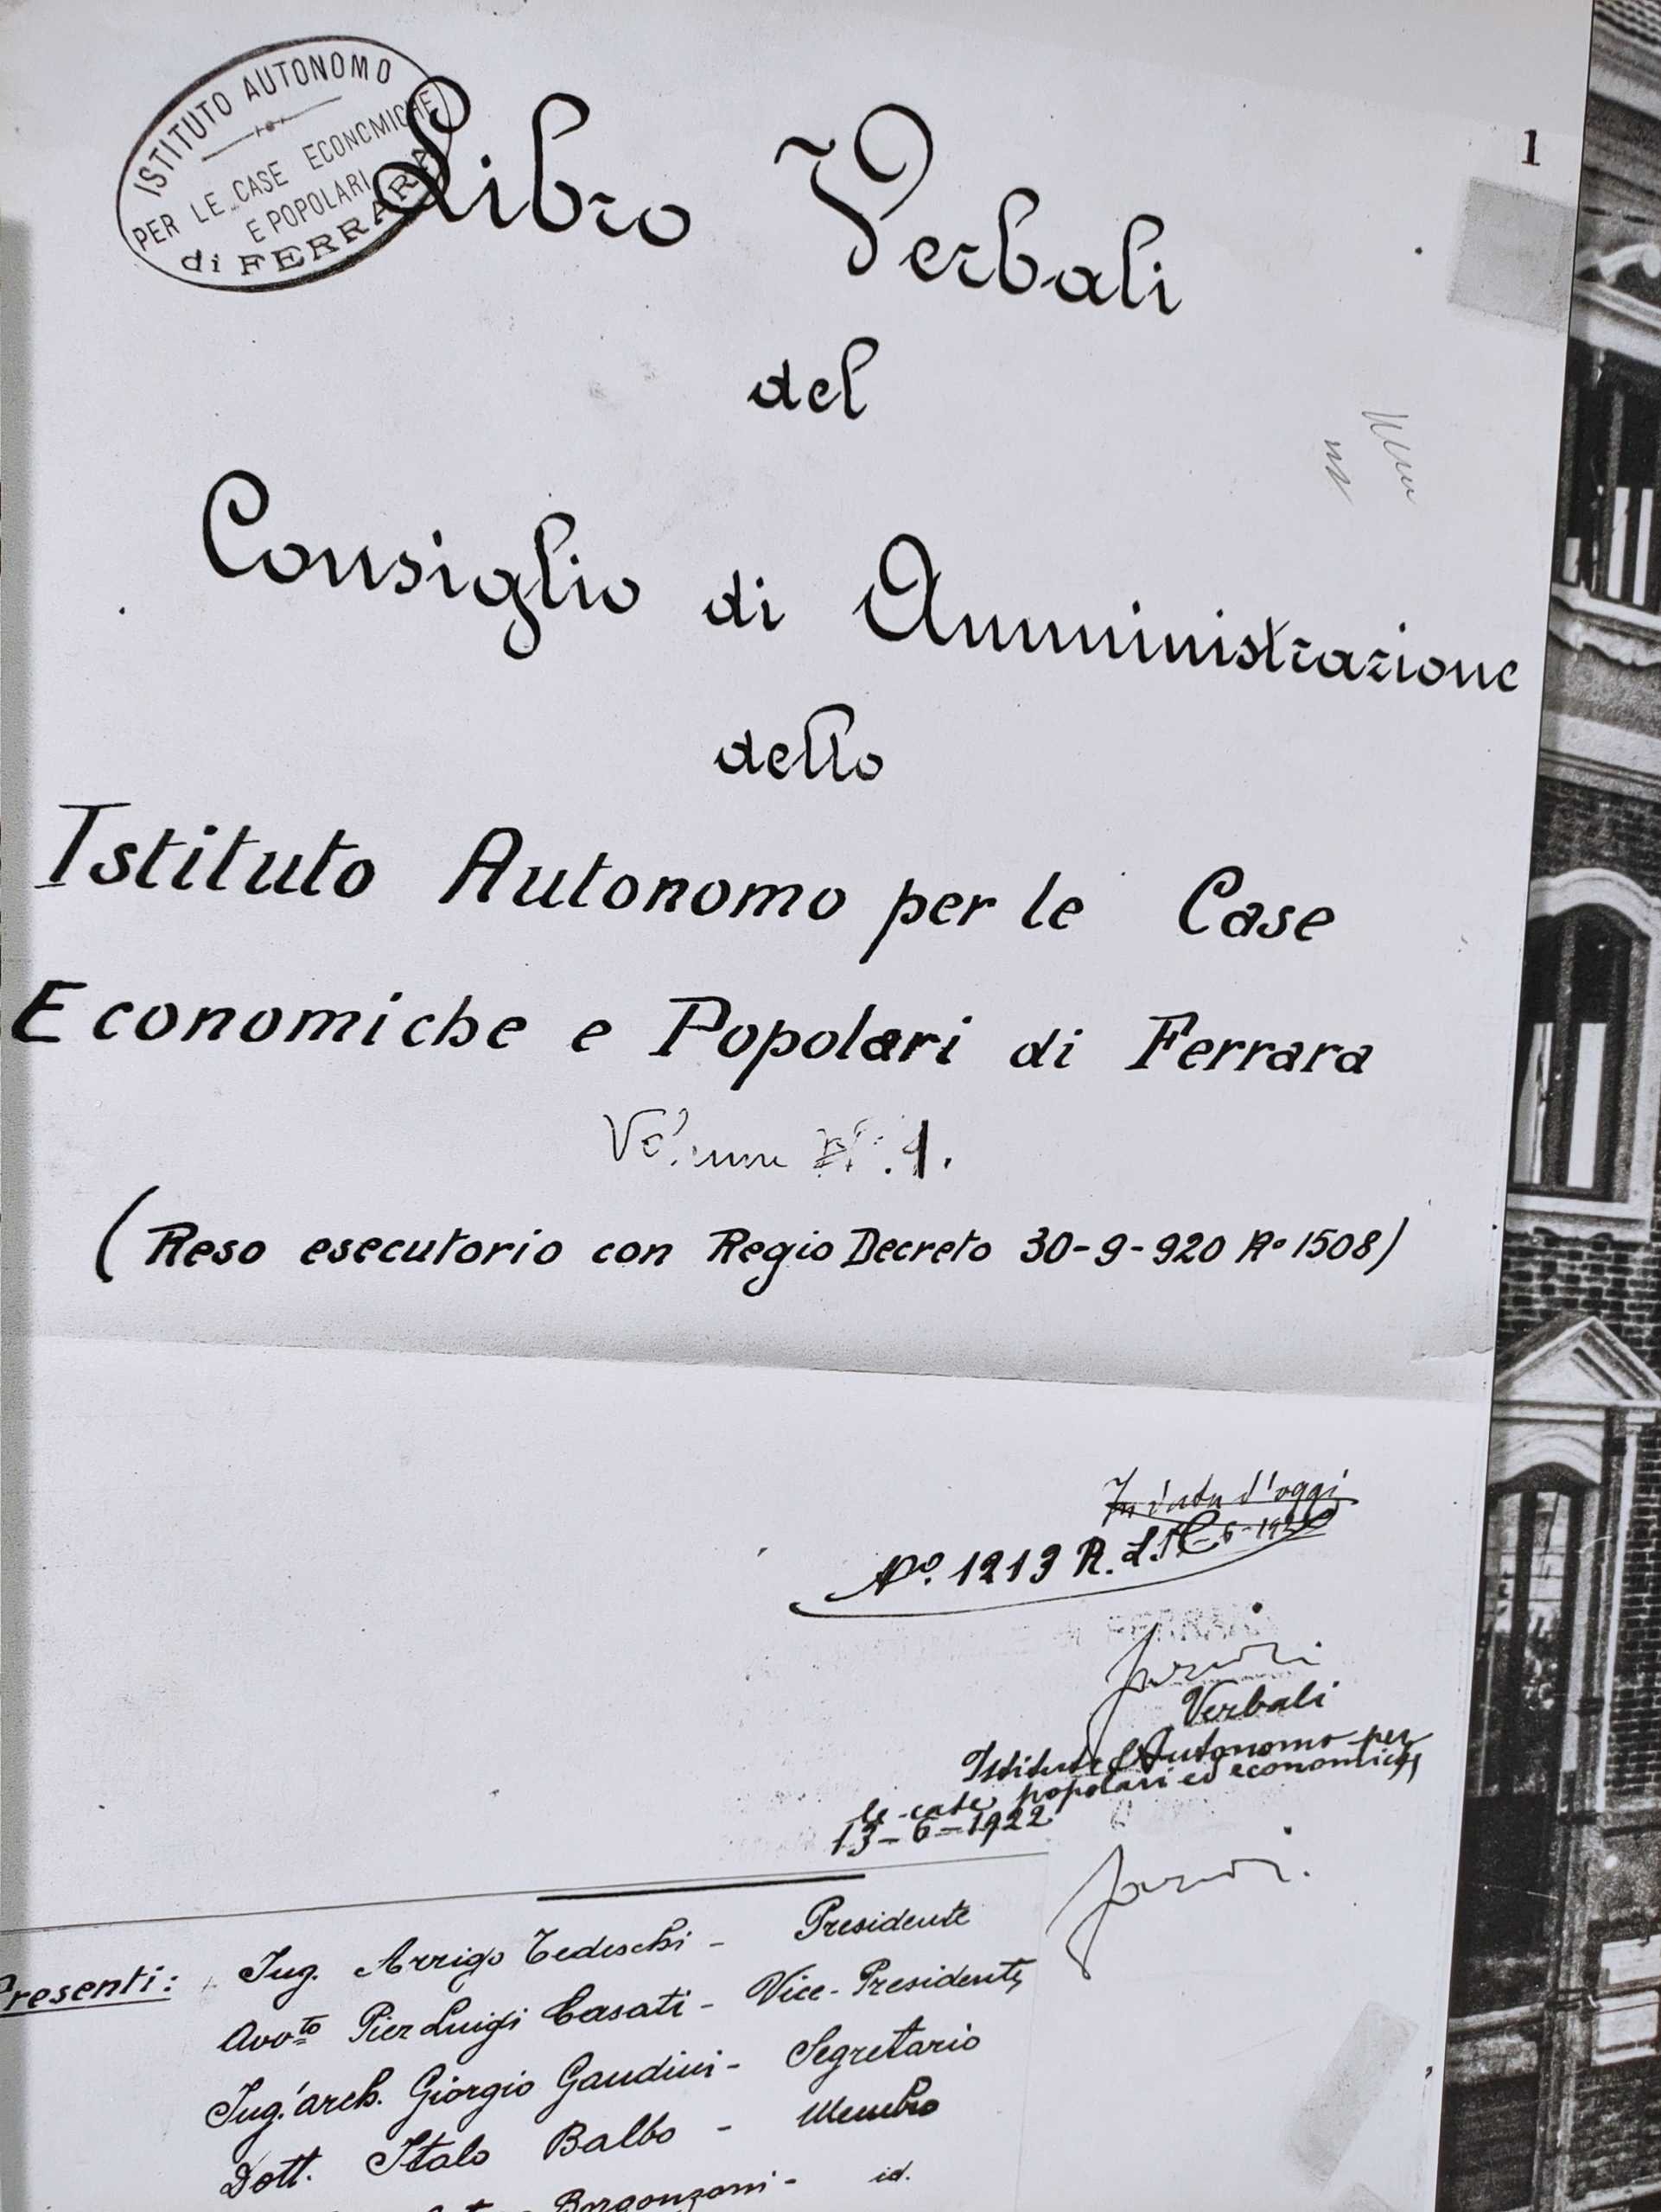 ISTITUTO AUTONOMO
PER LE CASE ECONOMICHE
E POPOLARI
di FERRARA
1
Libro Verbali
del
Consiglio di Amministrazione
dello
Istituto Autonomo per le Case
Economiche e Popolari di Ferrara
Volume N. 1.
(Reso esecutorio con Regio Decreto 30-9-920 No 1508)
In data d'oggi
No. 1213 R.
FERRARA
Verbali
Istituto Autonomo per
le case popolari ed economiche
13-6-1922
Presenti: Ing. Arrigo Tedeschi - Presidente
Avv.to Pier Luigi Casati - Vice-Presidente
Ing. arch. Giorgio Gandini - Segretario
Dott. Italo Balbo - Membro
Borgonzoni - id.